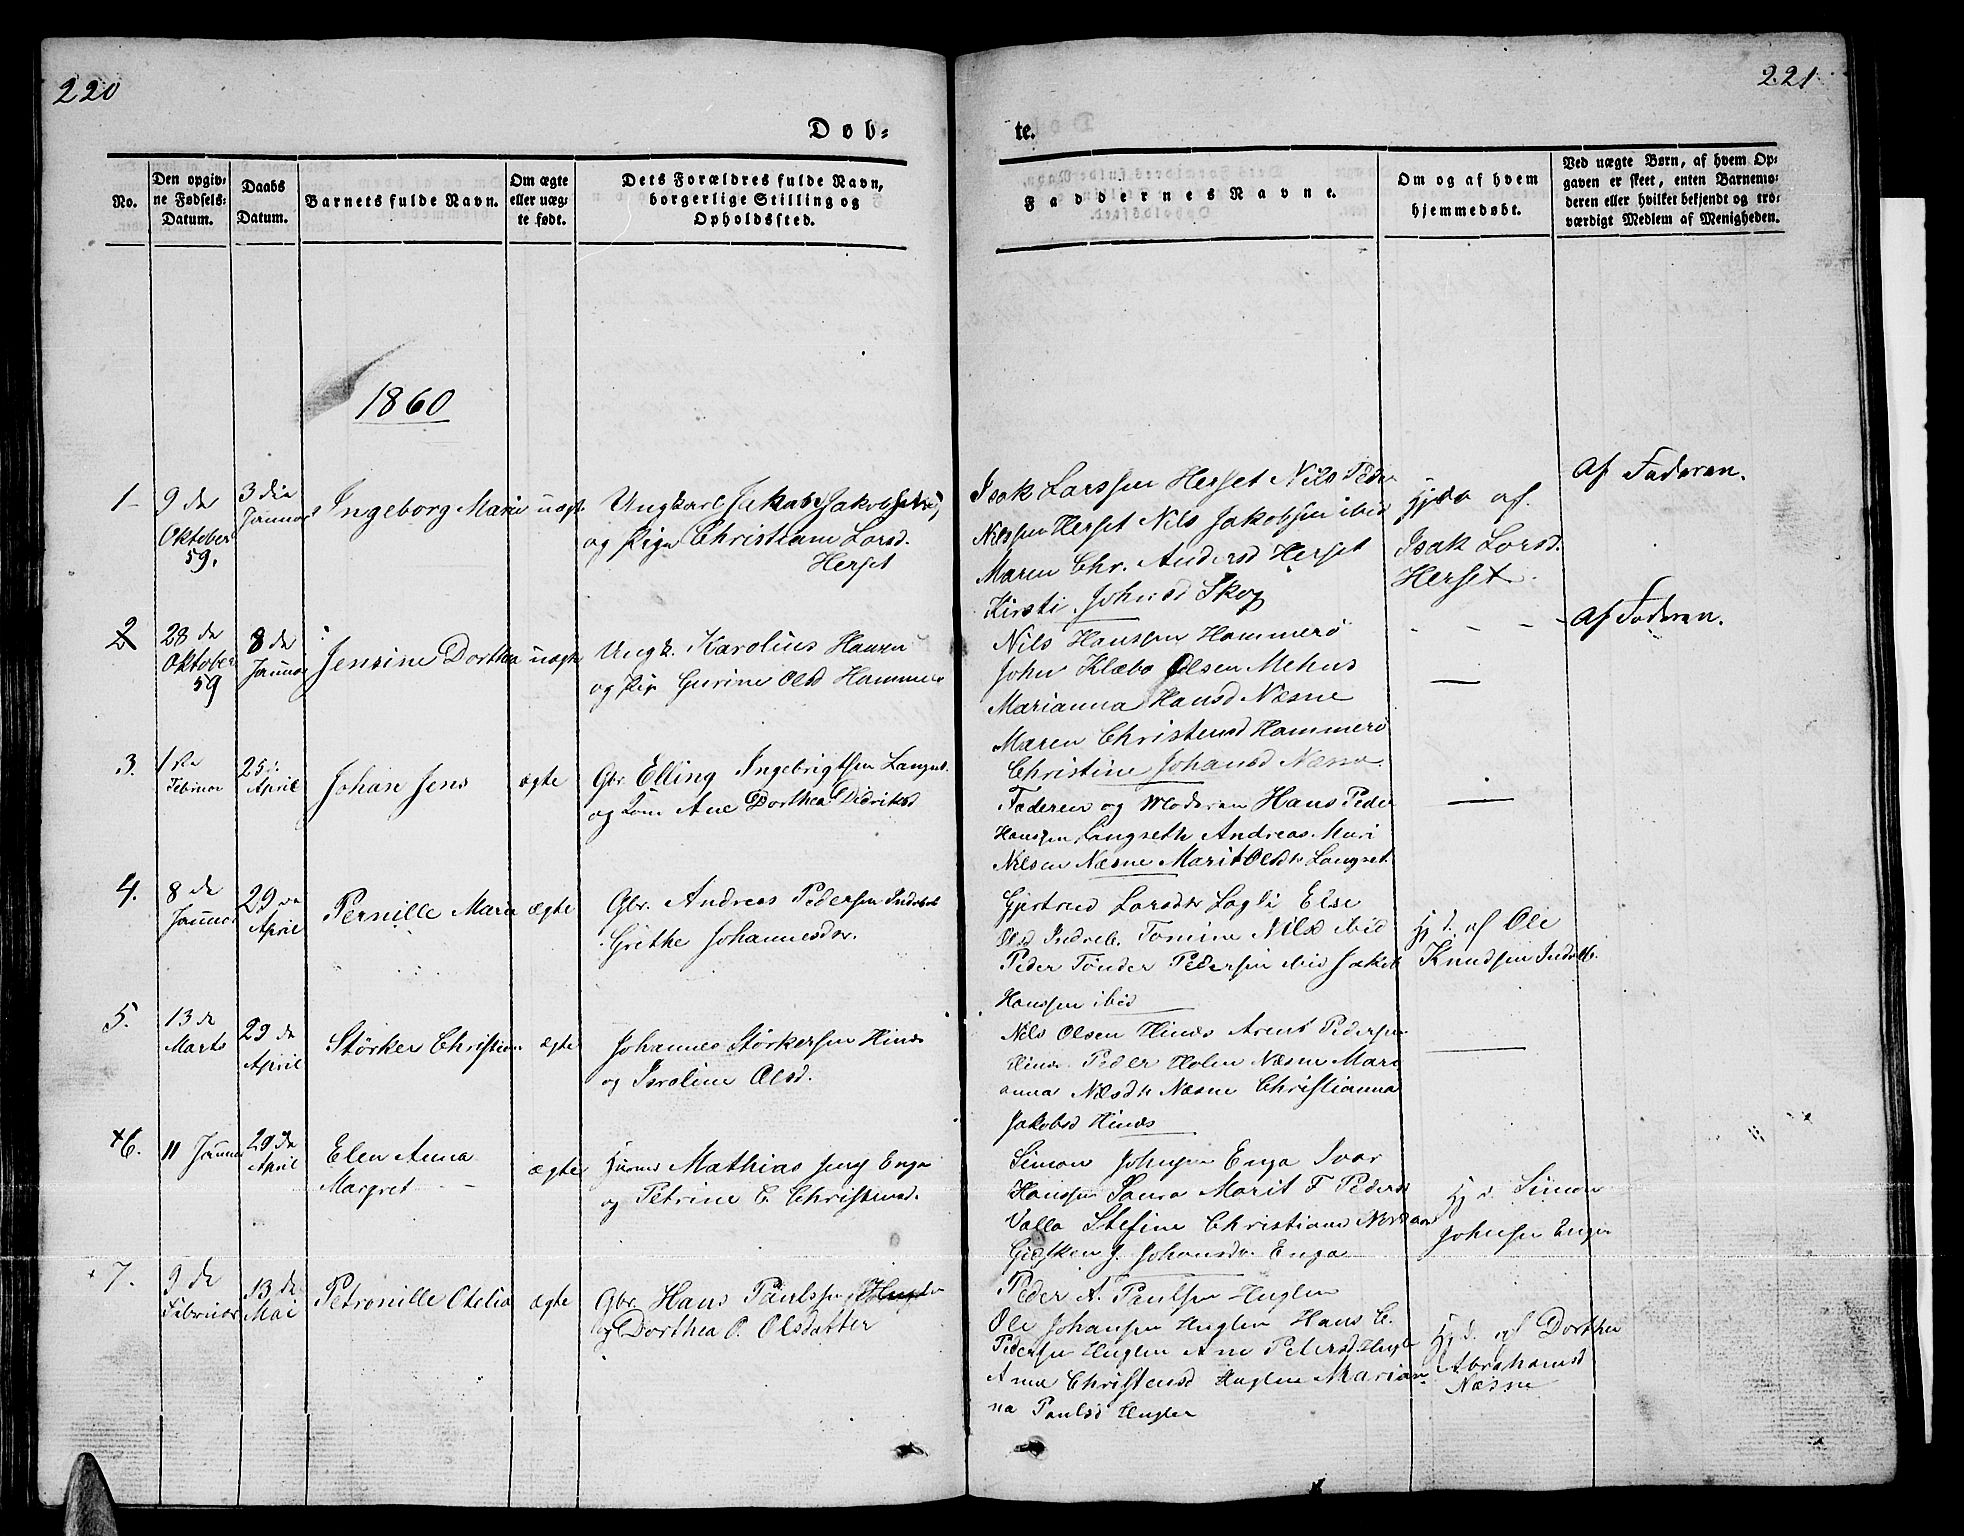 220
221
Døb-
te.
No.
Den opgiv-
ne Fødsels-
Datum.
Daabs
Datum.
Barnets fulde Navn.
Om ægte
eller uæg-
te født.
Dets Forældres fulde Navn,
borgerlige Stilling og
Opholdssted.
Faddernes Navne.
Om og af hvem
hjemmedøbt.
Ved uægte Børn, af hvem Op-
gaven er skeet, enten Barnemo-
deren eller hvilket bekjendt og tro-
værdigt Medlem af Menigheden.
1860
1
9 de
Oktober
59.
3 die
Januar
Ingeborg Marie
uægte
Ungkarl Jakob Jakobsen
og Pige Christiane Larsd.
Herset
Isak Larssen Herset Nils Peder
Nilssen Herset Nils Jakobsen ibid
Maren Chr. Andersd Herset
Kirsti Johnsd Skog
Hjdø af
Isak Larsd.
Herset
Af Faderen.
2
28 de
Oktober
59
8 de
Januar
Jensine Dorthea
uægte
Ungk. Karolius Hansen
og Pige Gurine Olsd Hammerø
Nils Hanssen Hammerø
John Klæbo Olsen Mehus
Marianna Hansd Næsne
Maren Christensd Hammerø
Christine Johansd Næsne
Af Faderen.
3.
1 ste
Februar
25 de
April
Johan Jens
ægte
Gbr. Elling Ingebrigtsen Langset
og Kone Ane Dorthea Didriksd
Faderen og Moderen Hans Peder
Hanssen Langseth Andreas Mari
Nilsen Næsne Marit Olsdr Langset
4.
8 de
Januar
29 de
April
Pernille Marie
ægte
Gbr. Andreas Pedersen Indreb
Grethe Johannesdr.
Gjertrud Larsdr Lagli Else
Olsd Indreb. Tomine Nilsd ibid
Peder Tønder Pedersen ibid Jakob
Hanssen ibid
Hj d. af Ole
Knudsen Indreb.
5.
13 de
Marts
29 de
April
Størker Christian
ægte
Johannes Størkersen Hinæs
og Isroline Olsd.
Nils Olsen Hinæs Arent Pedersen
Hinæs Peder Holm Næsne Mari
anna Nilsdr Næsne Christianna
Jakobsd Hinæs
+6.
11 Januar
29 de
April
Elen Anna
Margret
ægte
Mathias Jensen Enga
og Petrine C. Christensd.
Simon Johnsen Enga Ivar
Hanssen Saura Marit F Pedersd
Valla Stefine Christiansd
J. Johansdr. Enga
Hj d. Simon
Johnsen Engen
+7.
9 de
Februar
13 de
Mai
Petronille Otelia
ægte
Gbr. Hans Paulssen Huglen
og Dorthea P. Olsdatter
Peder A. Paulsen Huglen
Ole Johansen Huglen Hans C.
Pedersen Huglen Ane Petersd Hugl
Anne Christensd Huglen Marian
na Paulsd Huglen
Hj d. af Dorthea
Abrahamsd
Næsne